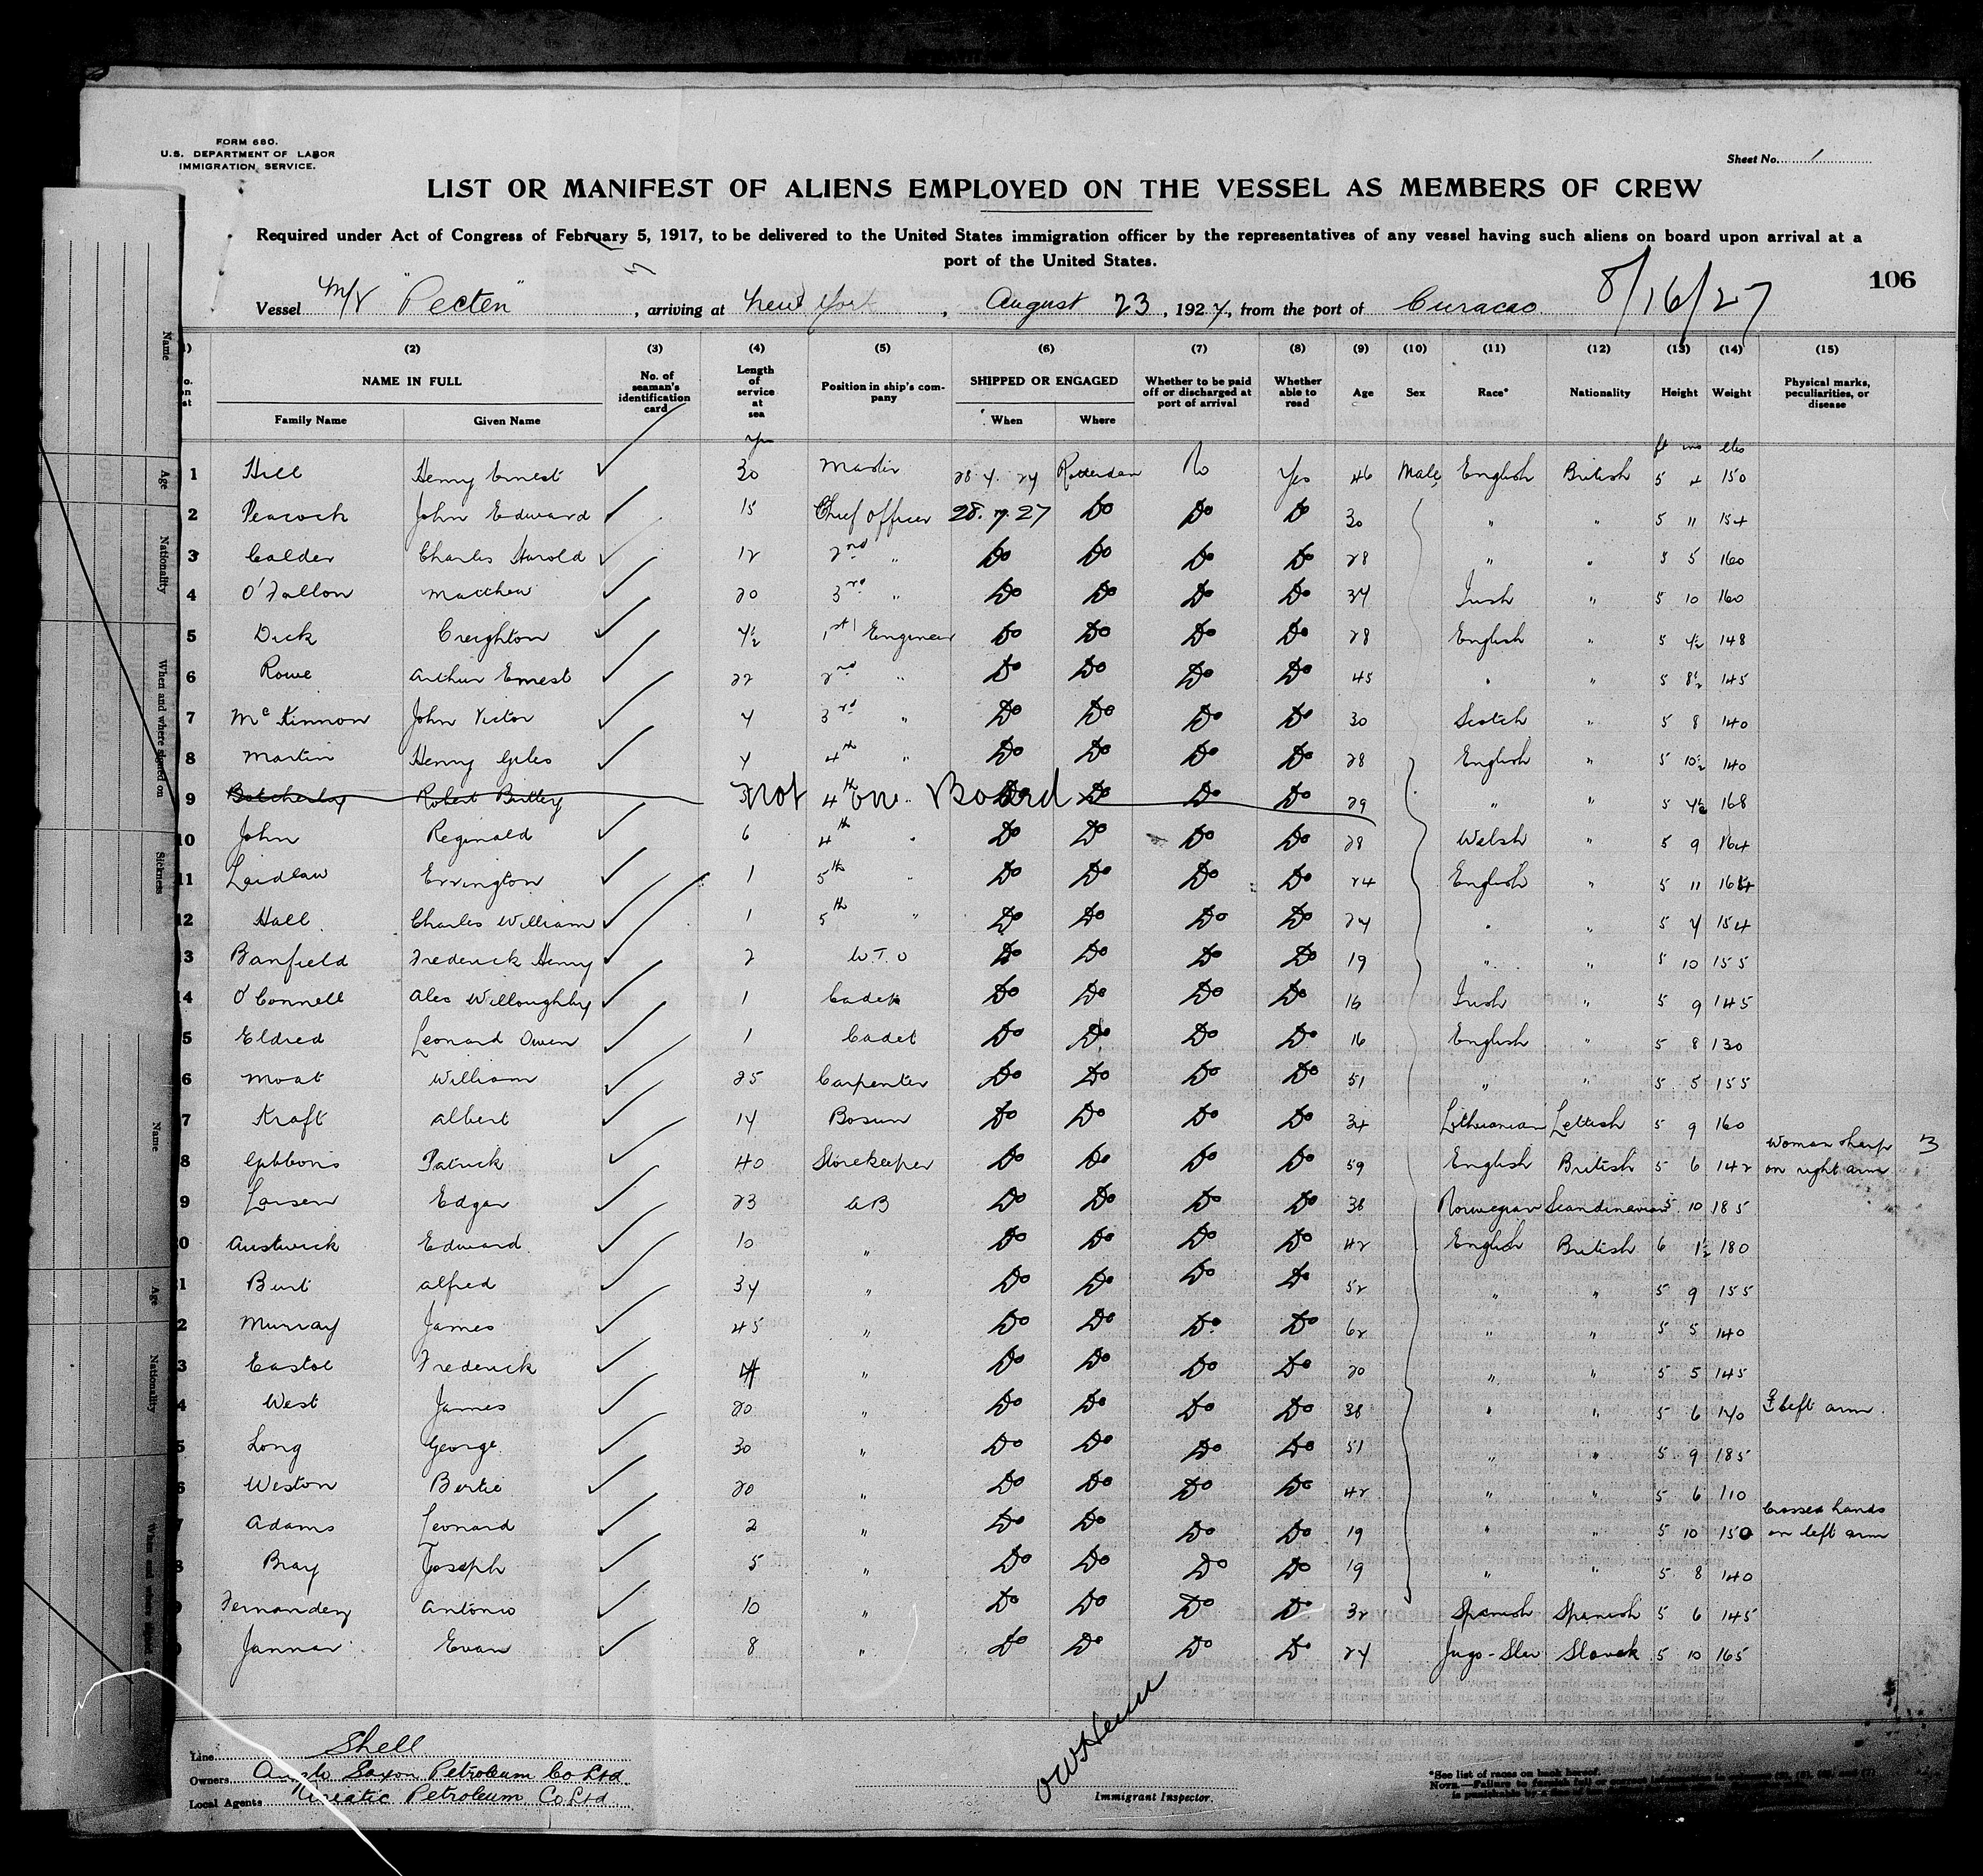 FORM 680.
U.S. DEPARTMENT OF LABOR
IMMIGRATION SERVICE.
Sheet No. 1
LIST OR MANIFEST OF ALIENS EMPLOYED ON THE VESSEL AS MEMBERS OF CREW
Required under Act of Congress of February 5, 1917, to be delivered to the United States immigration officer by the representatives of any vessel having such aliens on board upon arrival at a
port of the United States.
8/16/27 106
Vessel M/V "Pecten", arriving at New York, August 23, 1927, from the port of Curacao
(2) (3) (4) (5) (6) (7) (8) (9) (10) (11) (12) (13) (14) (15)
NAME IN FULL No. of seaman's identification card Length of service at sea Position in ship's company SHIPPED OR ENGAGED Whether to be paid off or discharged at port of arrival Whether able to read Age Sex Race* Nationality Height Weight Physical marks, peculiarities, or disease
Family Name Given Name When Where
yrs ft ins lbs
1 Hill Henry Ernest 30 Master 28 7 27 Rotterdam No Yes 46 Male English British 5 4 150
2 Peacock John Edward 15 Chief Officer 28.7.27 Do Do Do 30 " " 5 11 154
3 Calder Charles Harold 12 2nd " Do Do Do Do 28 " " 5 5 160
4 O'Fallon Matthew 20 3rd " Do Do Do Do 37 Irish " 5 10 160
5 Dick Creighton 4½ 1st Engineer Do Do Do Do 28 English " 5 4½ 148
6 Rowe Arthur Ernest 22 2nd " Do Do Do Do 45 " " 5 8½ 145
7 McKinnon John Victor 4 3rd " Do Do Do Do 30 Scotch " 5 8 140
8 Martin Henry Giles 4 4th " Do Do Do Do 28 English " 5 10½ 140
9 Botcherby Robert Bertley 4th " not on Board Do Do Do Do 29 " " 5 4½ 168
10 John Reginald 6 4th " Do Do Do Do 28 Welsh " 5 9 164
11 Laidlaw Errington 1 5th " Do Do Do Do 24 English " 5 11
12 Hall Charles William 1 5th " Do Do Do Do 27 " " 5 7 154
13 Banfield Frederick Henry 2 W.T.O Do Do Do Do 19 " " 5 10 155
14 O'Connell Alec Willoughby 1 Cadet Do Do Do Do 16 Irish " 5 9 145
5 Eldred Leonard Owen 1 Cadet Do Do Do Do 16 English " 5 8 130
6 Moat William 25 Carpenter Do Do Do Do 51 " " 5 5 155
7 Kraft Albert 14 Bosun Do Do Do Do 34 Lithuanian Lettish 5 9 160
8 Gibbons Patrick 40 Storekeeper Do Do Do Do 59 English British 5 6 142 woman sharp on right arm 3
9 Larsen Edgar 23 AB Do Do Do Do 38 Norwegian Scandinavian 5 10 185
0 Austwick Edward 10 " Do Do Do Do 42 English British 6 1½ 180
1 Burt Alfred 34 " Do Do Do Do 52 " " 5 9 155
2 Murray James 45 " Do Do Do Do 62 " " 5 5 140
3 Eastoe Frederick 4 " Do Do Do Do 20 " " 5 5 145
4 West James 20 " Do Do Do Do 38 " " 5 6 140 left arm.
5 Long George 30 " Do Do Do Do 51 " " 5 9 185
6 Weston Bertie 20 " Do Do Do Do 42 " " 5 6 110
7 Adams Leonard 2 " Do Do Do Do 19 " " 5 10 150 Crossed hands on left arm
8 Bray Joseph 5 " Do Do Do Do 19 " " 5 8 140
9 Fernandez Antonio 10 " Do Do Do Do 32 Spanish Spanish 5 6 145
Jannar Evan 8 " Do Do Do Do 27 Jugo-Slav Slovak 5 10 165
Line Shell
Owners Anglo Saxon Petroleum Co Ltd.
Local Agents Asiatic Petroleum Co Ltd
Immigrant Inspector.
*See list of races on back hereof.
Name
Age
Nationality
When and where signed on
Sickness
Name
Age
Nationality
When and where signed